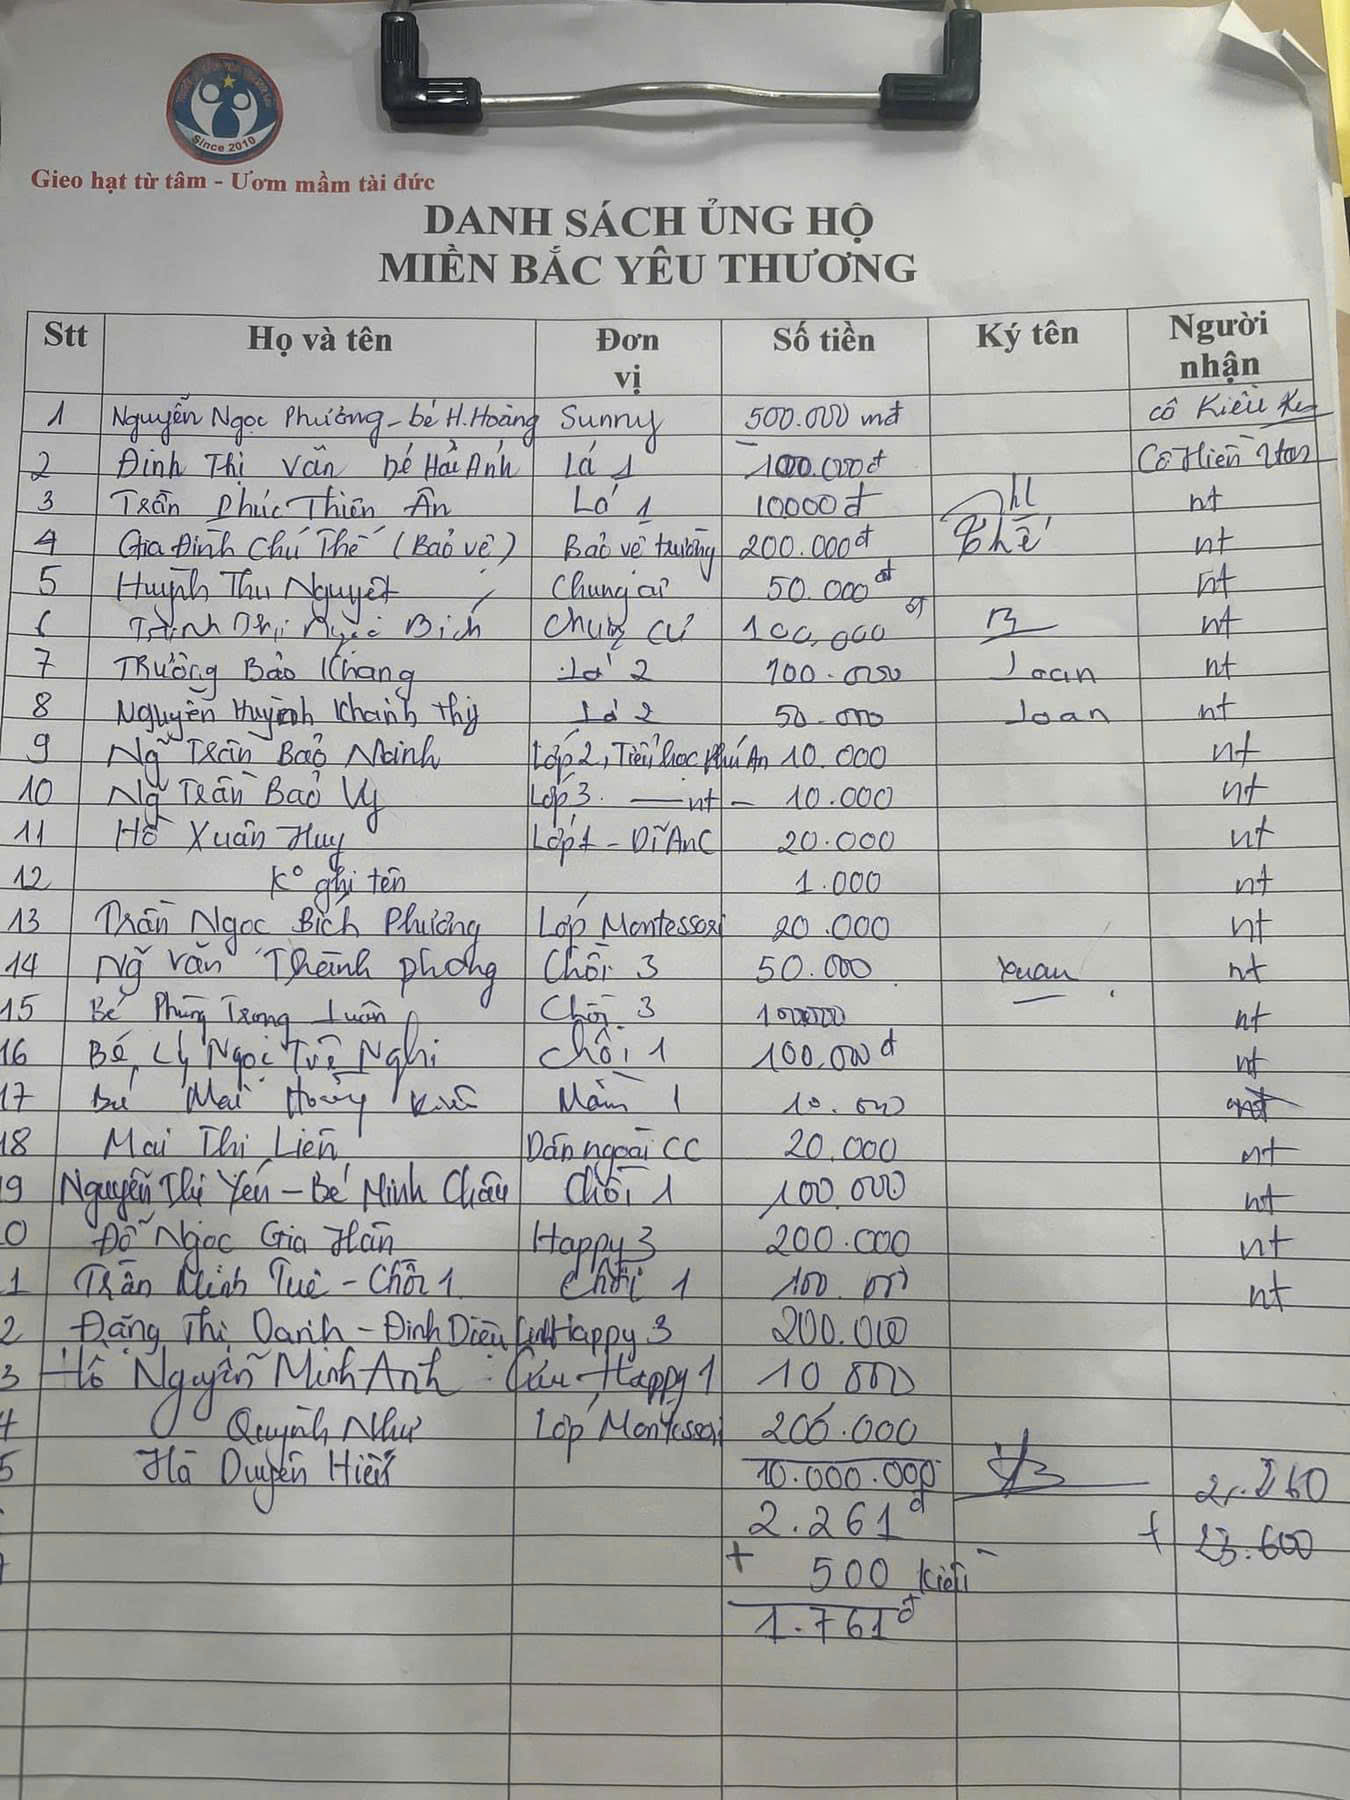 Since 2010
Gieo hạt từ tâm - Ươm mầm tài đức
DANH SÁCH ỦNG HỘ
MIỀN BẮC YÊU THƯƠNG
Stt Họ và tên Đơn vị Số tiền Ký tên Người nhận
1 Nguyễn Ngọc Phương - bé H.Hoàng Sunny 500.000 cô Kiều
2 Đinh Thị Vân bé Hải Anh Lá 1 100.000đ Cô Hiền
3 Trần Phúc Thiên Ân Lá 1 10000đ nt
4 Gia Đình Chú Thế (Bảo vệ) Bảo vệ trường 200.000đ Thế nt
5 Huỳnh Thu Nguyệt Chung cư 50.000đ nt
6 Ngọc Bích Chung cư 100.000đ nt
7 Trương Bảo Khang Lá 2 100.000 Loan nt
8 Nguyễn Huỳnh Khánh Thy Lá 2 50.000 Loan nt
9 Ng̃ Trần Bảo Lớp 2, Tiểu học Phú An 10.000 nt
10 Ng̃ Trần Bảo Vy Lớp 3. — nt — 10.000 nt
11 Hồ Xuân Huy Lớp 1 - Dĩ An C 20.000 nt
12 K° ghi tên 1.000 nt
13 Trần Ngọc Bích Phương Lớp Montessori 20.000 nt
14 Ng̃ Văn Thành Phong Chồi 3 50.000 Xuan nt
15 Bé Phùng Trọng Luân Chồi 3 100000 nt
16 Bé Lý Ngọc Tuệ Nghi Chồi 1 100.000đ nt
17 Bé Mai Hoàng Mầm 1 10.000 nt
18 Mai Thị Liên Dân ngoài CC 20.000 nt
9 Nguyễn Thị Yến - Bé Minh Châu Chồi 1 100.000 nt
0 Đỗ Ngọc Gia Hân Happy 3 200.000 nt
1 Trần Minh Tuệ - Chồi 1 Chồi 1 100.000 nt
2 Đặng Thị Oanh - Đinh Diệu Linh Happy 3 200.000
3 Hồ Nguyễn Minh Anh Happy 1 10 000
4 Quỳnh Như Lớp Montessori 200.000
5 Hà Duyên Hiển 10.000.000
2.261đ 21.260
+ 500 Kiều + 23.600
1.761đ